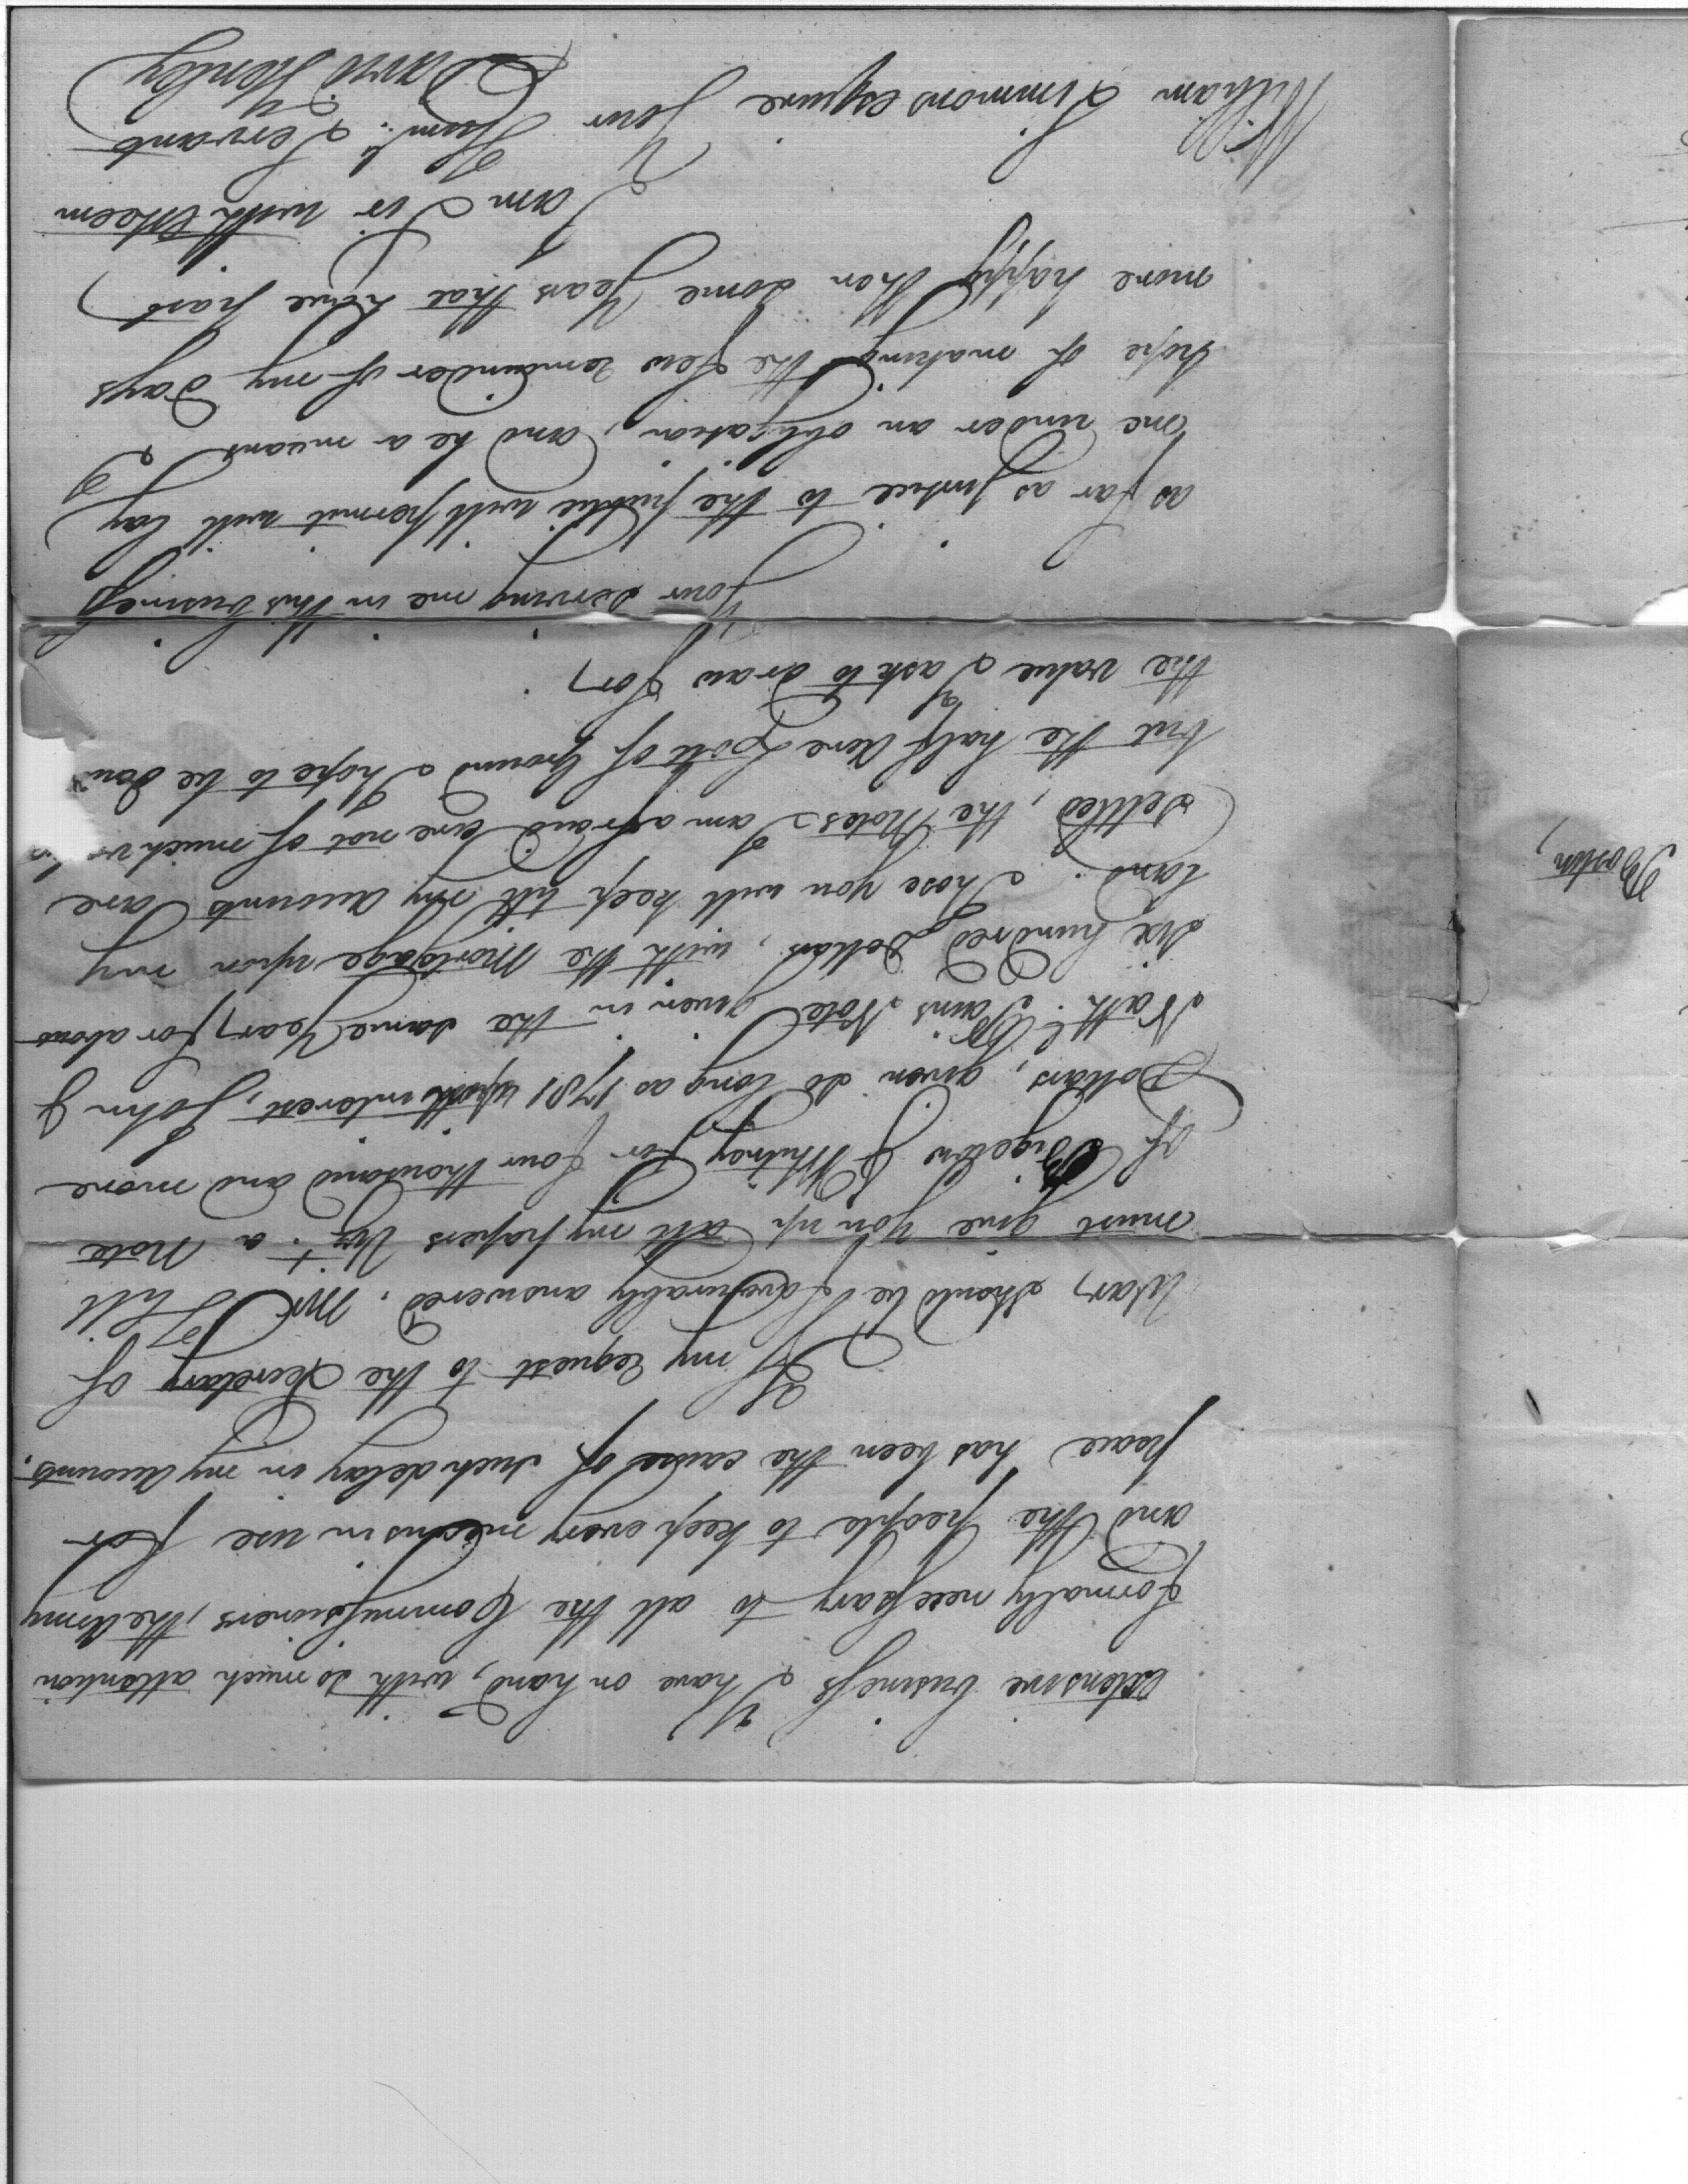 extensive business I have on hand, with so much attention
formally necessary to all the Commissioners, the Army
and the people to keep every means in use for
peace has been the cause of such delay in my Accounts.
If my request to the Secretary of
War, should be favourably answered. Mr
must give you up all my papers Vizt. a Note
of Bigelow & Whitney for four thousand and more
Dollars, given so long as 1781 with interest, John &
Nathl. Note given in the same Year, for about
six hundred Dollars, with the Mortgage upon my
land. Those you will keep till my accounts are
settled, the Notes I am afraid are not of much
but the half Acre spott of Ground I hope to be
the value I ask to draw for,
Your serving me in this business
as far as justice to the public will permit will lay
me under an obligation, and be a means I
hope of making the few remainder of my days
more happy than some Years that have past,
I am Sir with esteem
Your Huml. Servant
William Simmons esquire David Henley
Boston,